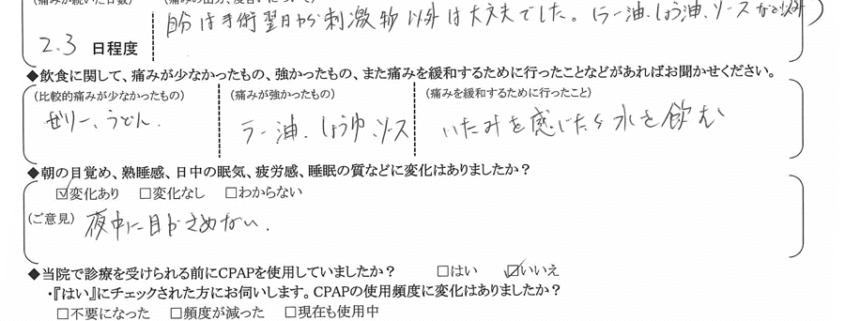 (痛みが続いた日数) (痛みの出方、度合いについて)
2.3 日程度 自分は手術翌日から刺激物以外は大丈夫でした。(ラー油、しょう油、ソースなど以外)
◆飲食に関して、痛みが少なかったもの、強かったもの、また痛みを緩和するために行ったことなどがあればお聞かせください。
(比較的痛みが少なかったもの) (痛みが強かったもの) (痛みを緩和するために行ったこと)
ゼリー、うどん. ラー油、しょうゆ、ソース いたみを感じたら水を飲む
◆朝の目覚め、熟睡感、日中の眠気、疲労感、睡眠の質などに変化はありましたか?
☑変化あり □変化なし □わからない
(ご意見) 夜中に目がさめない.
◆当院で診療を受けられる前にCPAPを使用していましたか? □はい ☑いいえ
・『はい』にチェックされた方にお伺いします。CPAPの使用頻度に変化はありましたか?
□不要になった □頻度が減った □現在も使用中